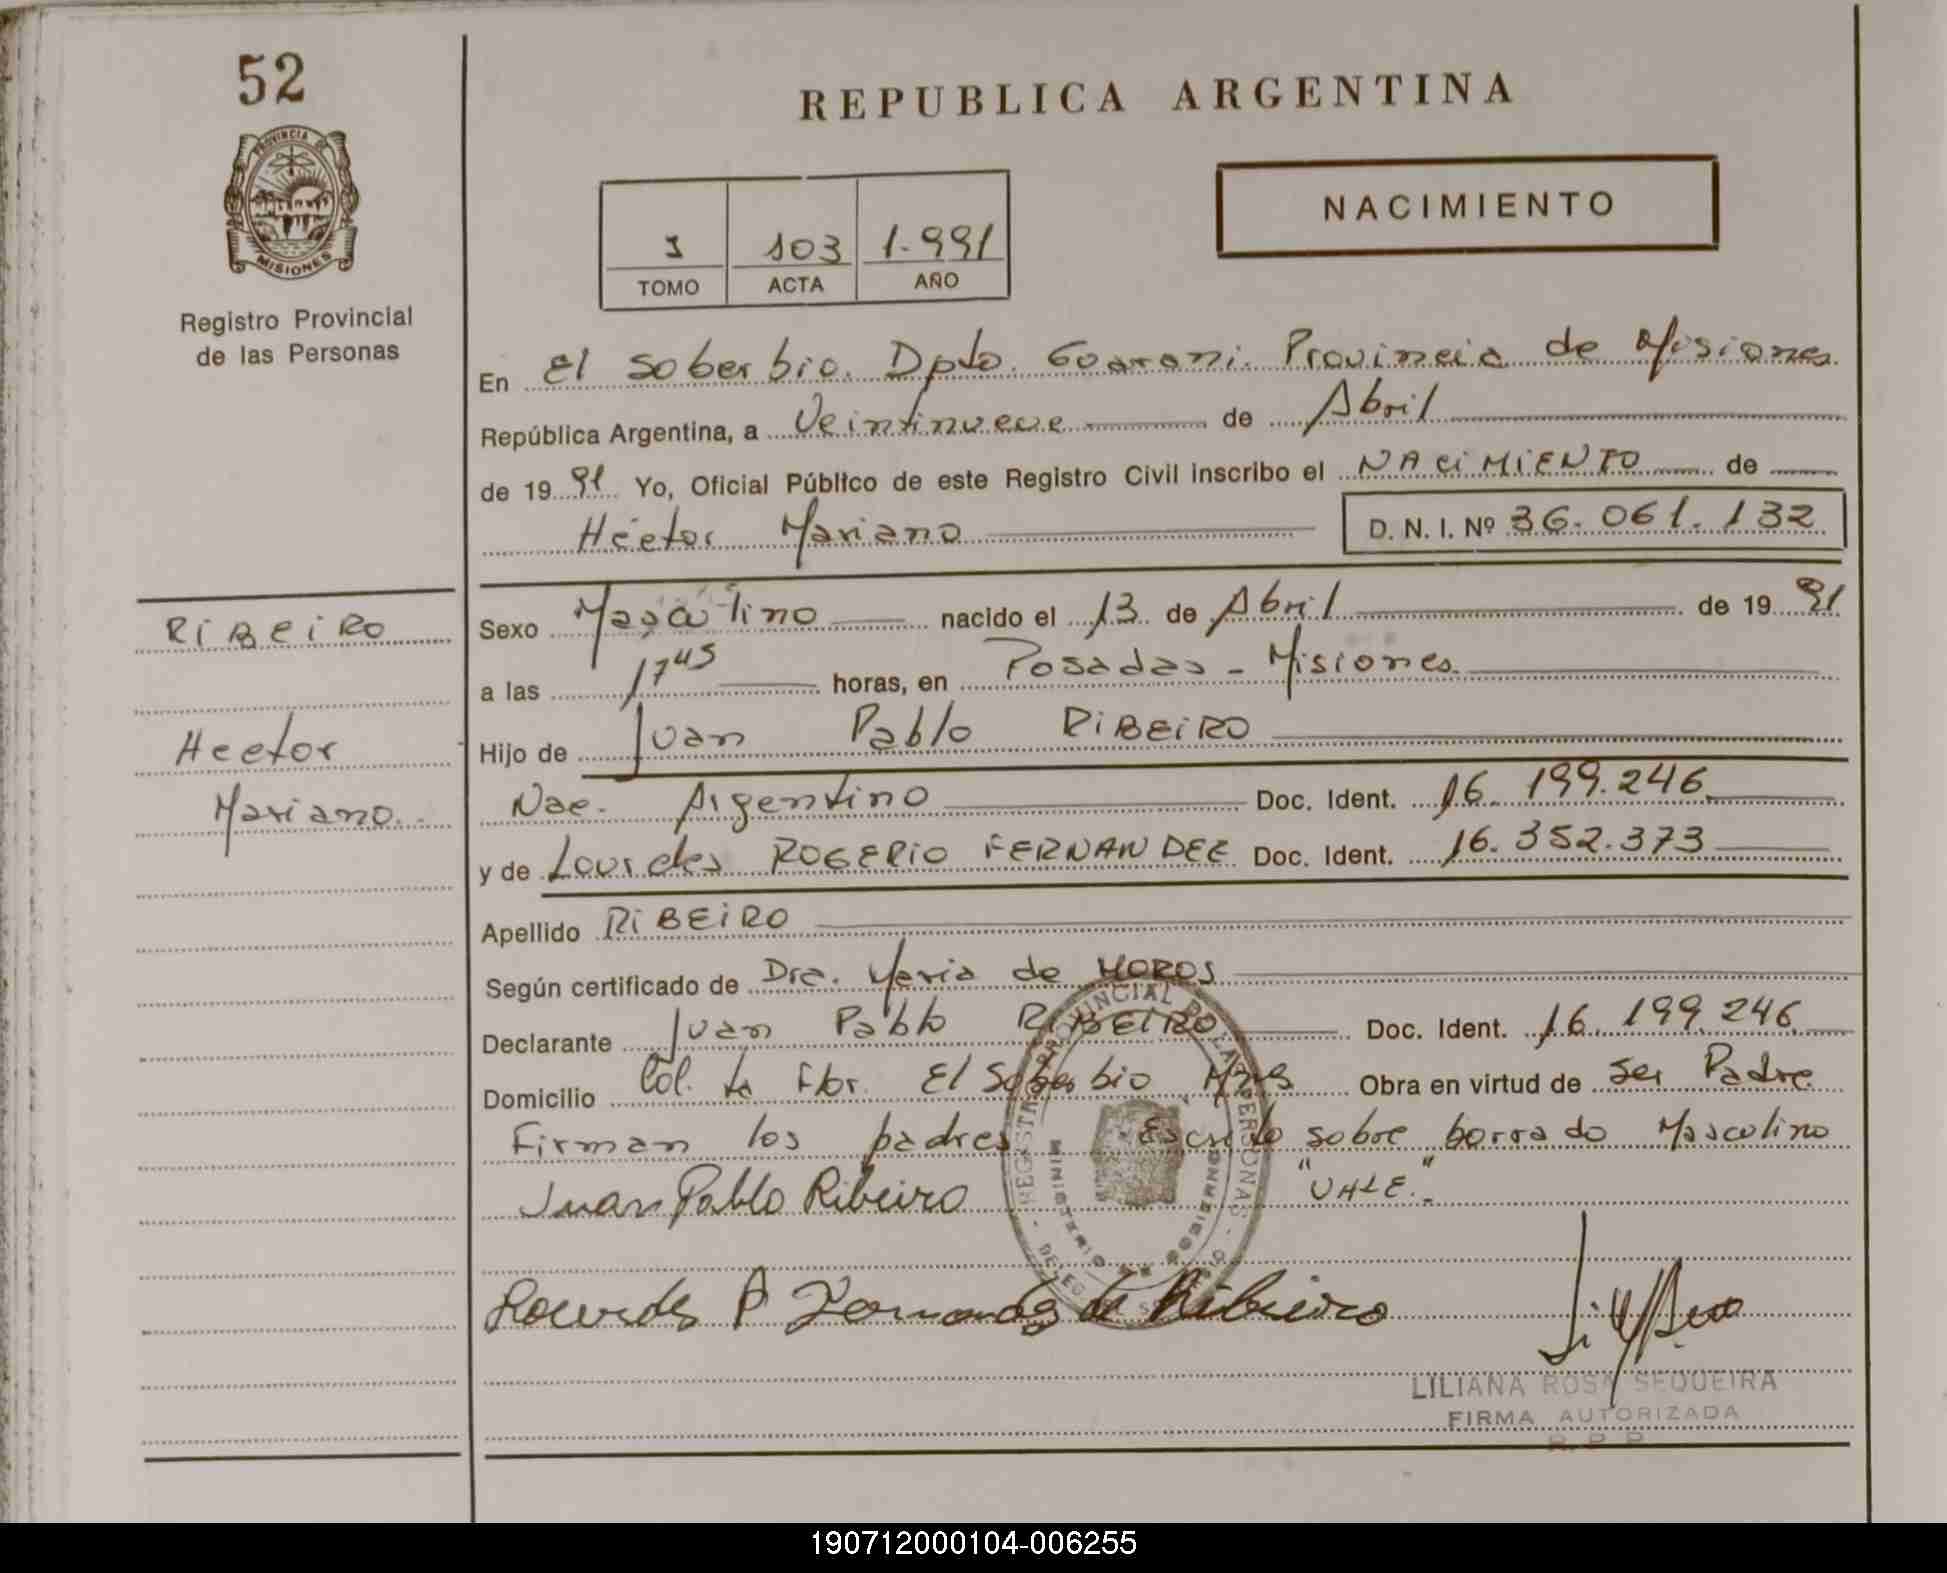 52
REPUBLICA ARGENTINA
PROVINCIA DE
MISIONES
Registro Provincial
de las Personas
1 103 1.991
TOMO ACTA AÑO
NACIMIENTO
En El Soberbio. Dpto. Guarani. Provincia de Misiones
República Argentina, a Veintinueve de Abril
de 19 91 Yo, Oficial Público de este Registro Civil inscribo el NACIMIENTO de
Héctor Mariano D. N. I. Nº 36.061.132
RIBEIRO
Hector
Mariano
Sexo Masculino nacido el 13 de Abril de 19 91
a las 17 45 horas, en Posadas - Misiones
Hijo de Juan Pablo RIBEIRO
Nac. Argentino Doc. Ident. 16.199.246
y de Lourdes ROGERIO FERNANDEZ Doc. Ident. 16.352.373
Apellido RIBEIRO
Según certificado de Dra. Maria de MOROS
Declarante Juan Pablo RIBEIRO Doc. Ident. 16.199.246
Domicilio Col. La Flor. El Soberbio Mnes Obra en virtud de ser Padre
Firman los padres Escrito sobre borrado Masculino
Juan Pablo Ribeiro "VALE."
Lourdes R Fernandez de Ribeiro
REGISTRO PROVINCIAL DE LAS PERSONAS
MINISTERIO DE GOBIERNO
LILIANA ROSA SEQUEIRA
FIRMA AUTORIZADA
R. P. P.
190712000104-006255